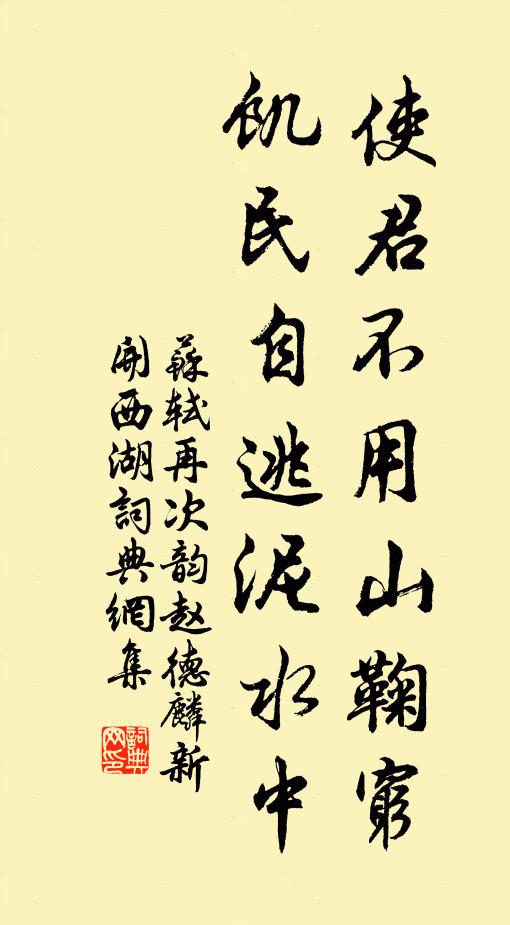 使君不用山鞠窮
飢民自逃泥水中
蘇軾再次韵赵德麟新
開西湖詞典網集
詞典网印